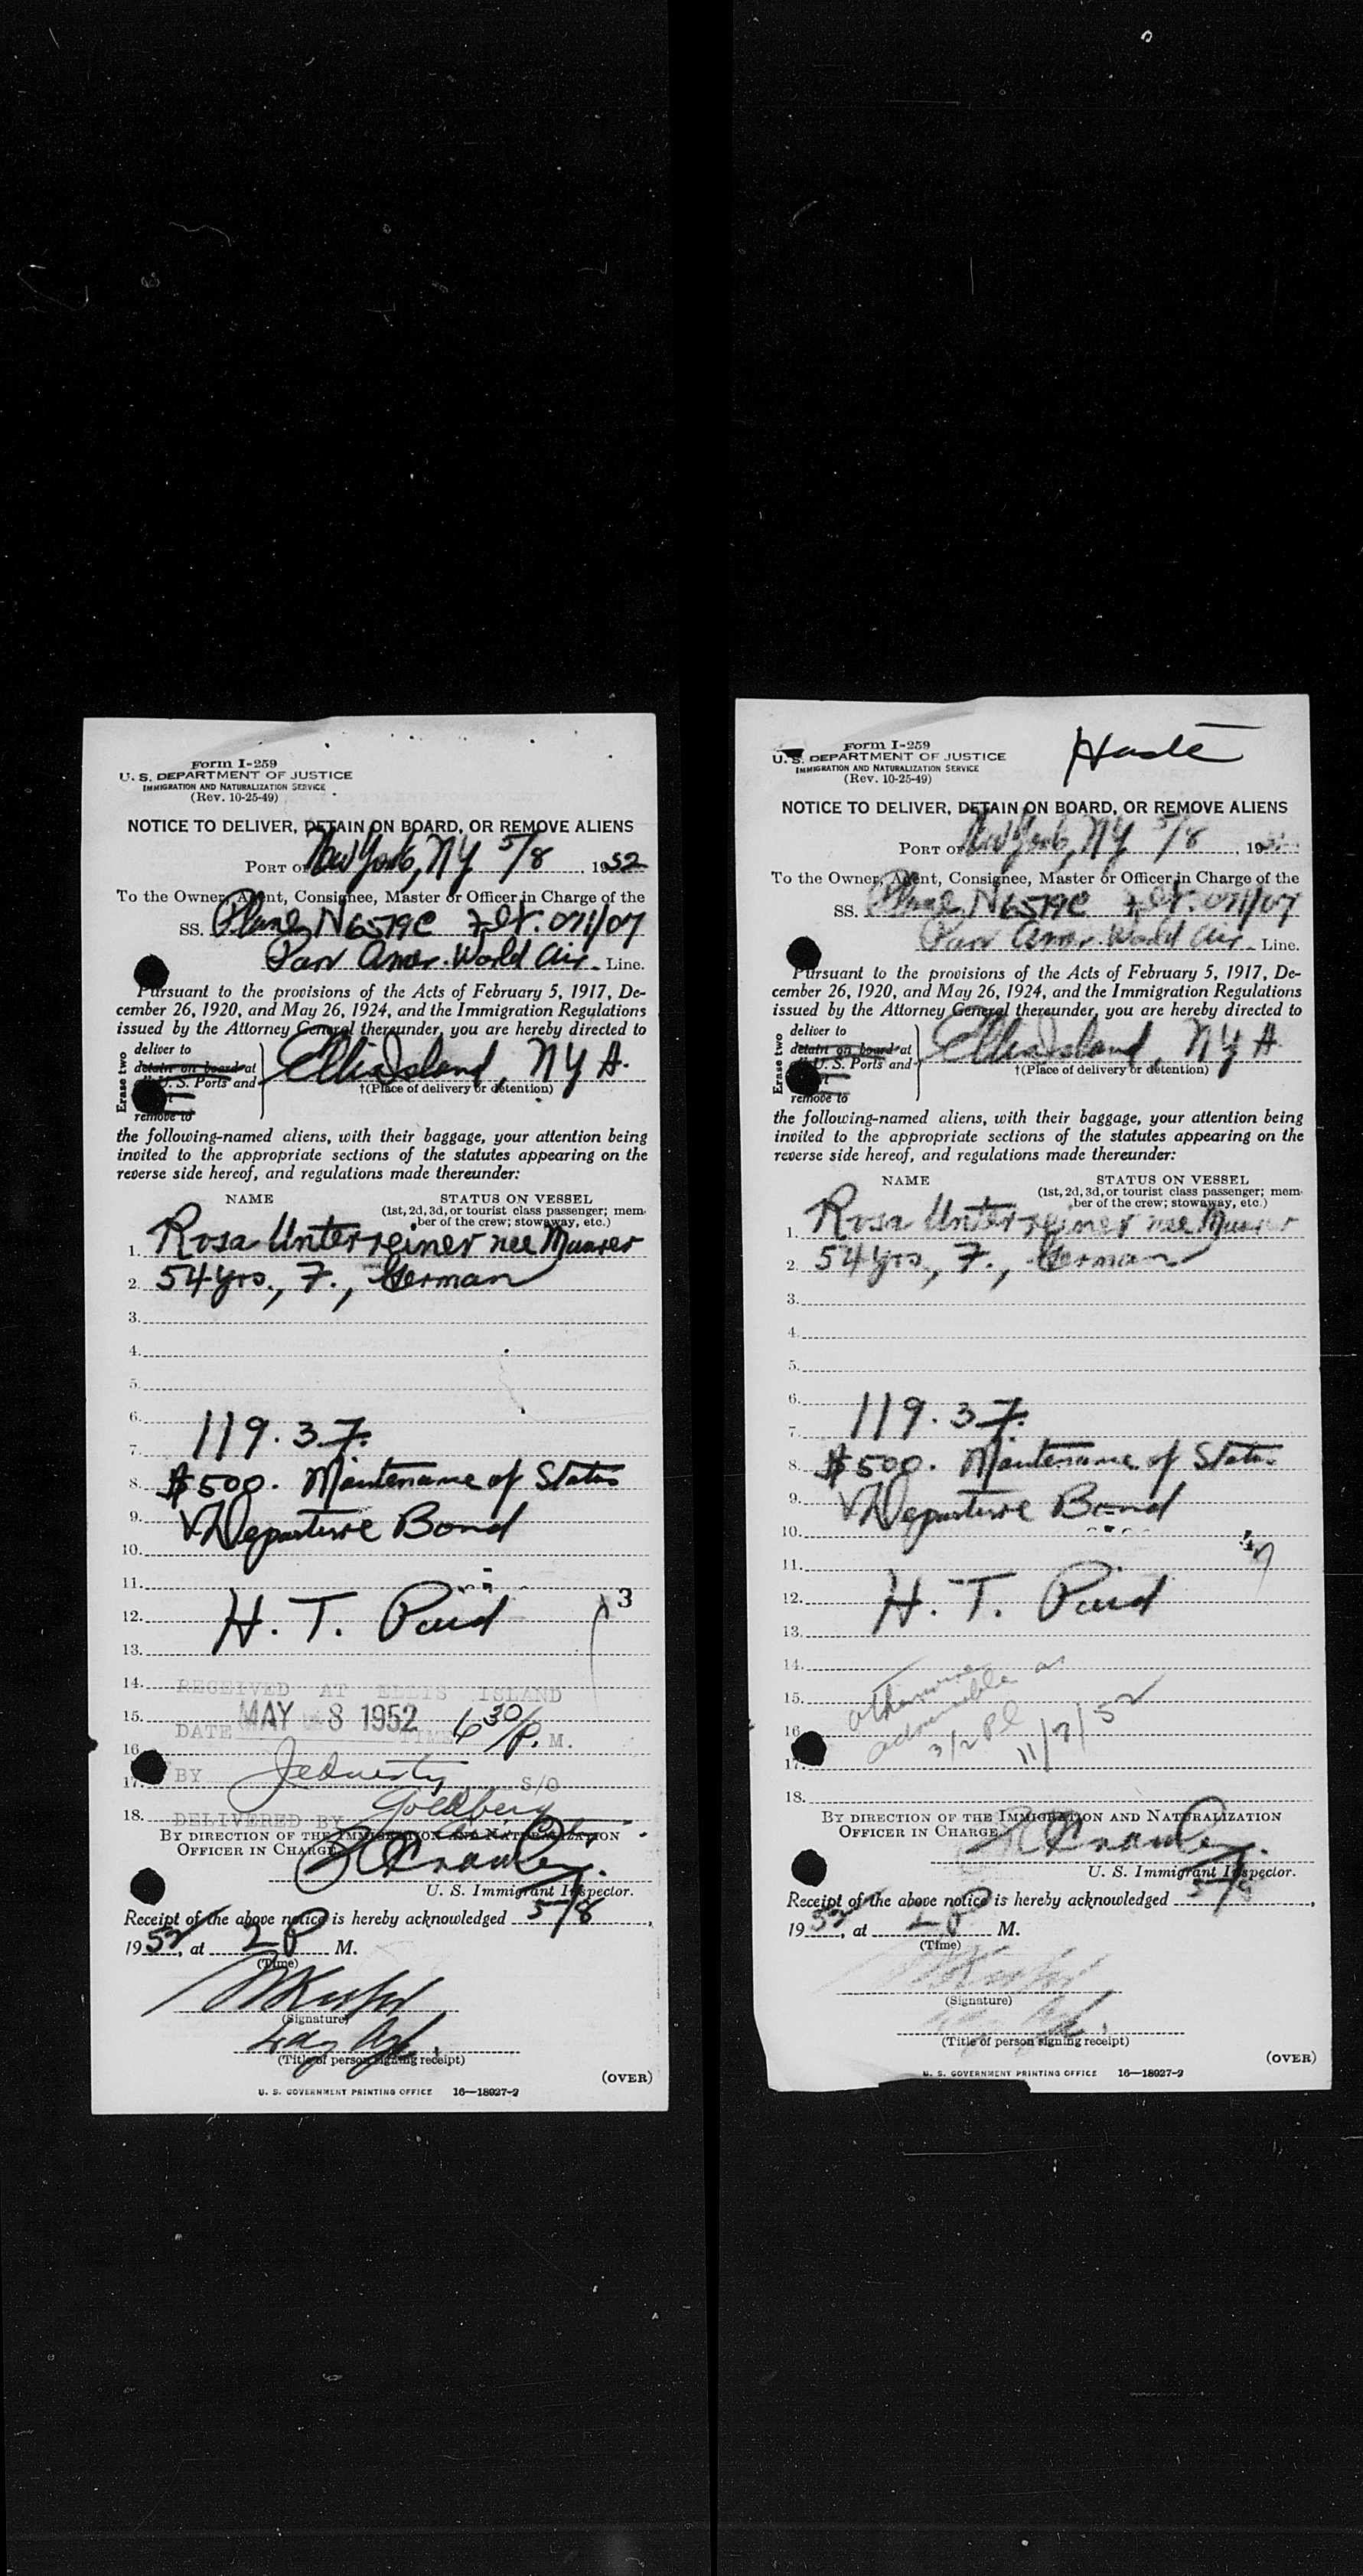 Form I-259
U. S. DEPARTMENT OF JUSTICE
IMMIGRATION AND NATURALIZATION SERVICE
(Rev. 10-25-49)
NOTICE TO DELIVER, DETAIN ON BOARD, OR REMOVE ALIENS
PORT OF New York, NY 5/8, 1952
To the Owner, Agent, Consignee, Master or Officer in Charge of the
SS. Plane N6579C Flt. 071/07
Pan Amer. World Air. Line.
Pursuant to the provisions of the Acts of February 5, 1917, De-
cember 26, 1920, and May 26, 1924, and the Immigration Regulations
issued by the Attorney General thereunder, you are hereby directed to
Erase two
deliver to
detain on board at
U. S. Ports and
remove to
Ellis Island, NY H.
†(Place of delivery or detention)
the following-named aliens, with their baggage, your attention being
invited to the appropriate sections of the statutes appearing on the
reverse side hereof, and regulations made thereunder:
NAME STATUS ON VESSEL
(1st, 2d, 3d, or tourist class passenger; mem-
ber of the crew; stowaway, etc.)
1. Rosa Unterreiner nee Maurer
2. 54 yrs., F., German
3.
4.
5.
6.
7. 119.3 F.
8. $500. Maintenance of Status
9. & Departure Bond
10.
11.
12. H. T. Paid 3
13.
14. RECEIVED AT ELLIS ISLAND
15. DATE MAY 8 1952 TIME 6 30/P. M.
16.
17. BY S/O
18. DELIVERED BY Goldberg
BY DIRECTION OF THE IMMIGRATION AND NATURALIZATION
OFFICER IN CHARGE
U. S. Immigrant Inspector.
Receipt of the above notice is hereby acknowledged 5/8,
1952, at 2 P M.
(Time)
(Signature)
(Title of person signing receipt)
(OVER)
U. S. GOVERNMENT PRINTING OFFICE 16—18027-2
Form I-259
U. S. DEPARTMENT OF JUSTICE
IMMIGRATION AND NATURALIZATION SERVICE
(Rev. 10-25-49)
NOTICE TO DELIVER, DETAIN ON BOARD, OR REMOVE ALIENS
PORT OF New York, NY 5/8, 195
To the Owner, Agent, Consignee, Master or Officer in Charge of the
SS. Plane N6579C Flt. 071/07
Pan Amer. World Air. Line.
Pursuant to the provisions of the Acts of February 5, 1917, De-
cember 26, 1920, and May 26, 1924, and the Immigration Regulations
issued by the Attorney General thereunder, you are hereby directed to
Erase two
deliver to
detain on board at
U. S. Ports and
remove to
Ellis Island, NY H
†(Place of delivery or detention)
the following-named aliens, with their baggage, your attention being
invited to the appropriate sections of the statutes appearing on the
reverse side hereof, and regulations made thereunder:
NAME STATUS ON VESSEL
(1st, 2d, 3d, or tourist class passenger; mem-
ber of the crew; stowaway, etc.)
1. Rosa Unterreiner nee Maurer
2. 54 yrs., F., German
3.
4.
5.
6.
7. 119.3 F.
8. $500. Maintenance of Status
9. & Departure Bond
10.
11.
12. H. T. Paid
13.
14. otherwise as
15. admissible
16. 3/2 Pl 11/7/52
17.
18.
BY DIRECTION OF THE IMMIGRATION AND NATURALIZATION
OFFICER IN CHARGE
U. S. Immigrant Inspector.
Receipt of the above notice is hereby acknowledged 5/8,
1952, at 2 P M.
(Time)
(Signature)
(Title of person signing receipt)
(OVER)
U. S. GOVERNMENT PRINTING OFFICE 16—18027-2